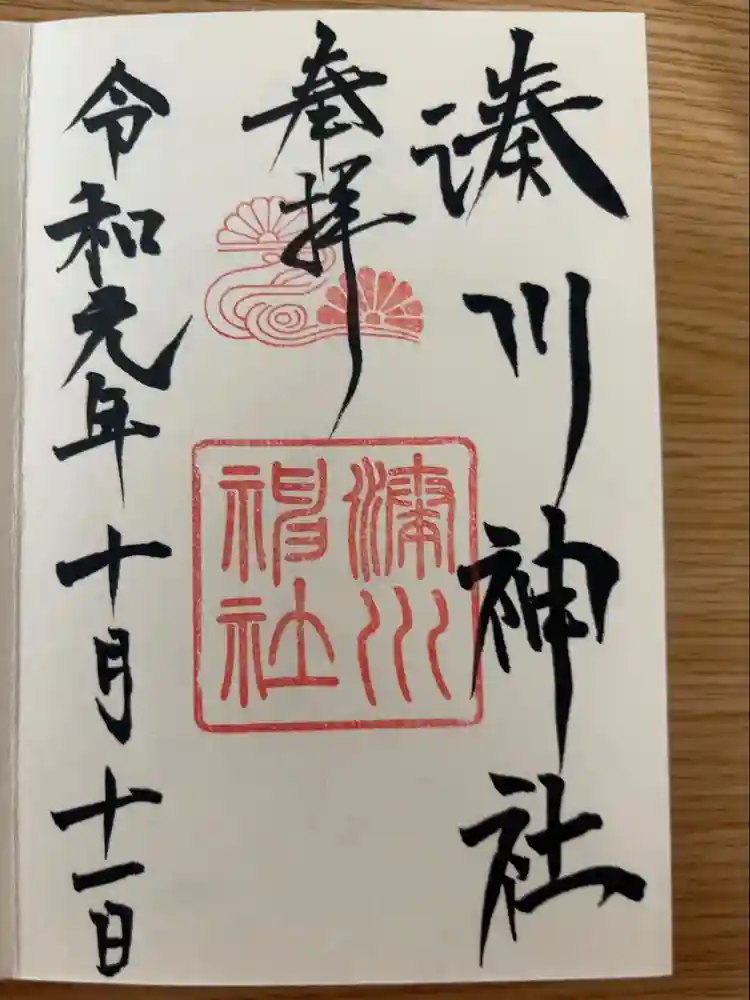 湊川神社
奉拝
湊川
神社
令和元年十月十一日